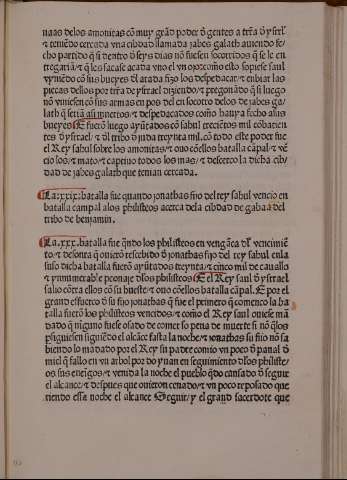 naas delos amonitas cō muy grād poder ð gentes a trr̃a ð ysrl'
⁊ teniēdo cercada vna cibdad llamada jabes galath auiendo fe-
cho partido q̃ si dentro ð seys dias nō fuesen socorridos q̃ se le en
tregaria ⁊ q̃ les sacase acada vno el vn ojo como esto supiese saul
vyniēdo cō sus bueyes ðl arada fizo los despedaçar ⁊ enbiar las
pieças dellos por trr̃a de ysrael diziendo ⁊ pregonādo q̃ si luego
nō viniesen cō sus armas en pos del en socorro delos de jabes ga-
lath q̃ seriā asi muertos ⁊ despedaçados como hauya fecho alus
bueyes E fuerō luego ayūtados cō sahul trecietos mil cōbatien
tes ðysrael ⁊ ðl tribo ð juda treynta mil cō todo este poder fue
el Rey sahul sobre los amonitas ⁊ ouo cōellos batalla cāpal ⁊ vē
cio los ⁊ mato ⁊ captiuo todos los mas ⁊ deserco la dicha cib-
dad de jabes galath que tenian cercada.
La .xxix. batalla fue quando jonathas fijo del rey sahul vencio en
batalla campal alos philisteos acerca dela cibdad de gabaa del
tribo de benjamin.
La .xxx. batalla fue q̃ndo los philisteos en vengāça ðl vencimiē
to ⁊ desonra q̃ ouierō rescebido ð jonathas fijo del rey sahul enla
suso dicha batalla fuerō ayūtados treynta ⁊ cinco mil de cauallo
⁊ ynnumerable peonaje ðlos philisteos E el Rey saul ð ysrael
salio cōtra ellos cō su hueste ⁊ ouo cōellos batalla cāpal. E por el
grand esfuerço ð su fijo jonathas q̃ fue el primero q̃ començo la ba
talla fuerō los philisteos vencidos ⁊ como el Rey saul ouiese mā
dado q̃ niguno fuese osado de comer so pena de muerte si nō q̃los
psiguiesen siguiēdo el alcāçe fasta la noche ⁊ jonathas su fijo nō sa
biendo lo mādado por el Rey su padre comio vn poco ð panal ð
miel q̃ fallo en vn arbol por do yuan en seguimiento ðlos philiste-
os sus enemigos ⁊ venida la noche el pueblo q̃do cansado ð seguir
el alcance ⁊ despues que ouieron cenado ⁊ vn poco reposado que
riendo essa noche el alcance Seguir ⁊ el grand sacerdote que